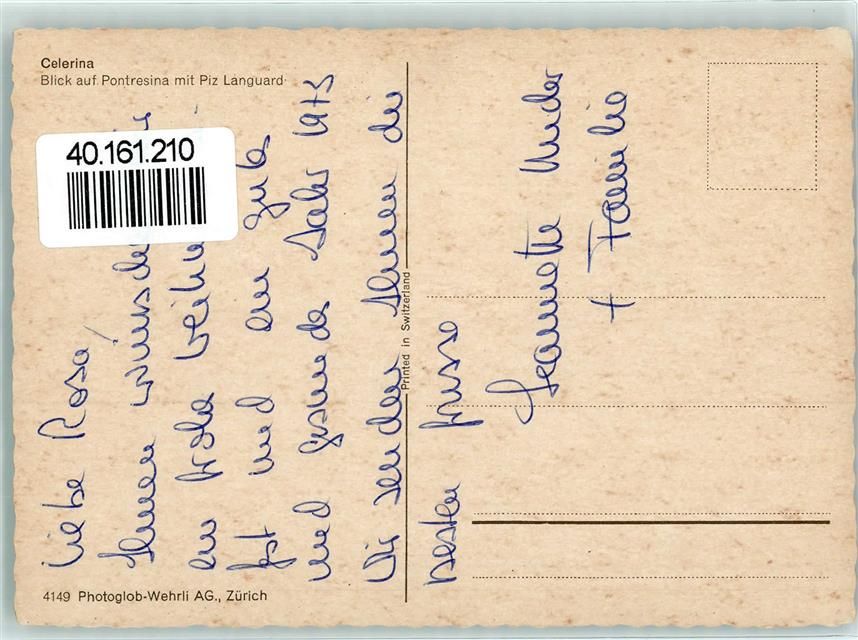 Celerina
Blick auf Pontresina mit Piz Languard
40.161.210
Liebe Rosa!
Ihnen wünschen
ein frohe Weihn
fst und ein gutes
und gesundes Jahr 1973
Wir senden Ihnen die
besten Grüsse
Jeannette
+ Familie
Printed in Switzerland
4149 Photoglob-Wehrli AG., Zürich